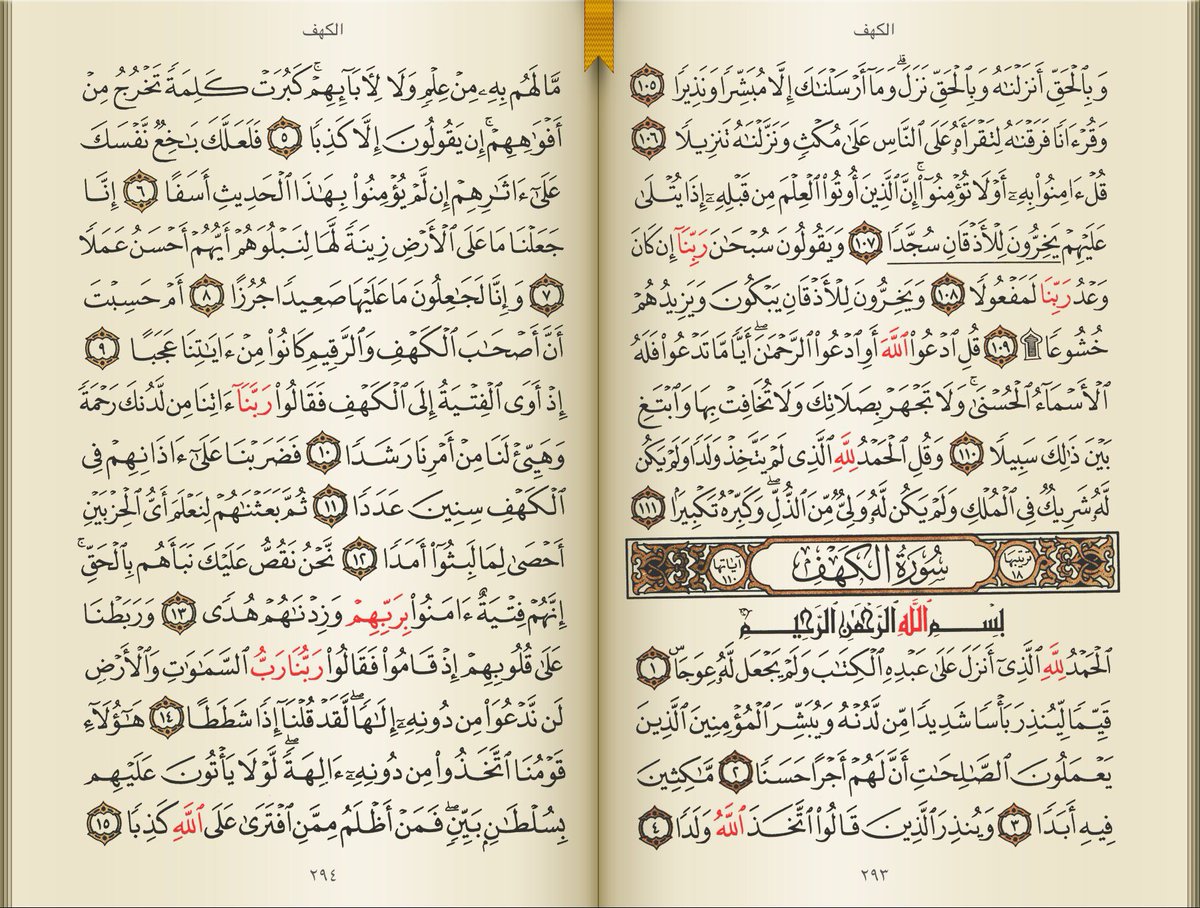 الكهف
وَبِٱلۡحَقِّ أَنزَلۡنَٰهُ وَبِٱلۡحَقِّ نَزَلَۗ وَمَآ أَرۡسَلۡنَٰكَ إِلَّا مُبَشِّرٗا وَنَذِيرٗا ١٠٥
وَقُرۡءَانٗا فَرَقۡنَٰهُ لِتَقۡرَأَهُۥ عَلَى ٱلنَّاسِ عَلَىٰ مُكۡثٖ وَنَزَّلۡنَٰهُ تَنزِيلٗا ١٠٦
قُلۡ ءَامِنُواْ بِهِۦٓ أَوۡ لَا تُؤۡمِنُوٓاْۚ إِنَّ ٱلَّذِينَ أُوتُواْ ٱلۡعِلۡمَ مِن قَبۡلِهِۦٓ إِذَا يُتۡلَىٰ
عَلَيۡهِمۡ يَخِرُّونَۤ لِلۡأَذۡقَانِۤ سُجَّدٗاۤ ١٠٧ وَيَقُولُونَ سُبۡحَٰنَ رَبِّنَآ إِن كَانَ
وَعۡدُ رَبِّنَا لَمَفۡعُولٗا ١٠٨ وَيَخِرُّونَ لِلۡأَذۡقَانِ يَبۡكُونَ وَيَزِيدُهُمۡ
خُشُوعٗا۩ ١٠٩ قُلِ ٱدۡعُواْ ٱللَّهَ أَوِ ٱدۡعُواْ ٱلرَّحۡمَٰنَۖ أَيّٗا مَّا تَدۡعُواْ فَلَهُ
ٱلۡأَسۡمَآءُ ٱلۡحُسۡنَىٰۚ وَلَا تَجۡهَرۡ بِصَلَاتِكَ وَلَا تُخَافِتۡ بِهَا وَٱبۡتَغِ
بَيۡنَ ذَٰلِكَ سَبِيلٗا ١١٠ وَقُلِ ٱلۡحَمۡدُ لِلَّهِ ٱلَّذِي لَمۡ يَتَّخِذۡ وَلَدٗا وَلَمۡ يَكُن
لَّهُۥ شَرِيكٞ فِي ٱلۡمُلۡكِ وَلَمۡ يَكُن لَّهُۥ وَلِيّٞ مِّنَ ٱلذُّلِّۖ وَكَبِّرۡهُ تَكۡبِيرَۢا ١١١
ترتيبها ١٨ سُورَةُ الكَهْفِ آياتها ١١٠
بِسۡمِ ٱللَّهِ ٱلرَّحۡمَٰنِ ٱلرَّحِيمِ
ٱلۡحَمۡدُ لِلَّهِ ٱلَّذِيٓ أَنزَلَ عَلَىٰ عَبۡدِهِ ٱلۡكِتَٰبَ وَلَمۡ يَجۡعَل لَّهُۥ عِوَجَاۜ ١
قَيِّمٗا لِّيُنذِرَ بَأۡسٗا شَدِيدٗا مِّن لَّدُنۡهُ وَيُبَشِّرَ ٱلۡمُؤۡمِنِينَ ٱلَّذِينَ
يَعۡمَلُونَ ٱلصَّٰلِحَٰتِ أَنَّ لَهُمۡ أَجۡرًا حَسَنٗا ٢ مَّٰكِثِينَ
فِيهِ أَبَدٗا ٣ وَيُنذِرَ ٱلَّذِينَ قَالُواْ ٱتَّخَذَ ٱللَّهُ وَلَدٗا ٤
٢٩٣
الكهف
مَّا لَهُم بِهِۦ مِنۡ عِلۡمٖ وَلَا لِأٓبَآئِهِمۡۚ كَبُرَتۡ كَلِمَةٗ تَخۡرُجُ مِنۡ
أَفۡوَٰهِهِمۡۚ إِن يَقُولُونَ إِلَّا كَذِبٗا ٥ فَلَعَلَّكَ بَٰخِعٞ نَّفۡسَكَ
عَلَىٰٓ ءَاثَٰرِهِمۡ إِن لَّمۡ يُؤۡمِنُواْ بِهَٰذَا ٱلۡحَدِيثِ أَسَفًا ٦ إِنَّا
جَعَلۡنَا مَا عَلَى ٱلۡأَرۡضِ زِينَةٗ لَّهَا لِنَبۡلُوَهُمۡ أَيُّهُمۡ أَحۡسَنُ عَمَلٗا
٧ وَإِنَّا لَجَٰعِلُونَ مَا عَلَيۡهَا صَعِيدٗا جُرُزًا ٨ أَمۡ حَسِبۡتَ
أَنَّ أَصۡحَٰبَ ٱلۡكَهۡفِ وَٱلرَّقِيمِ كَانُواْ مِنۡ ءَايَٰتِنَا عَجَبًا ٩
إِذۡ أَوَى ٱلۡفِتۡيَةُ إِلَى ٱلۡكَهۡفِ فَقَالُواْ رَبَّنَآ ءَاتِنَا مِن لَّدُنكَ رَحۡمَةٗ
وَهَيِّئۡ لَنَا مِنۡ أَمۡرِنَا رَشَدٗا ١٠ فَضَرَبۡنَا عَلَىٰٓ ءَاذَانِهِمۡ فِي
ٱلۡكَهۡفِ سِنِينَ عَدَدٗا ١١ ثُمَّ بَعَثۡنَٰهُمۡ لِنَعۡلَمَ أَيُّ ٱلۡحِزۡبَيۡنِ
أَحۡصَىٰ لِمَا لَبِثُوٓاْ أَمَدٗا ١٢ نَّحۡنُ نَقُصُّ عَلَيۡكَ نَبَأَهُم بِٱلۡحَقِّۚ
إِنَّهُمۡ فِتۡيَةٌ ءَامَنُواْ بِرَبِّهِمۡ وَزِدۡنَٰهُمۡ هُدٗى ١٣ وَرَبَطۡنَا
عَلَىٰ قُلُوبِهِمۡ إِذۡ قَامُواْ فَقَالُواْ رَبُّنَا رَبُّ ٱلسَّمَٰوَٰتِ وَٱلۡأَرۡضِ
لَن نَّدۡعُوَاْ مِن دُونِهِۦٓ إِلَٰهٗاۖ لَّقَدۡ قُلۡنَآ إِذٗا شَطَطًا ١٤ هَٰٓؤُلَآءِ
قَوۡمُنَا ٱتَّخَذُواْ مِن دُونِهِۦٓ ءَالِهَةٗۖ لَّوۡلَا يَأۡتُونَ عَلَيۡهِم
بِسُلۡطَٰنِۭ بَيِّنٖۖ فَمَنۡ أَظۡلَمُ مِمَّنِ ٱفۡتَرَىٰ عَلَى ٱللَّهِ كَذِبٗا ١٥
٢٩٤